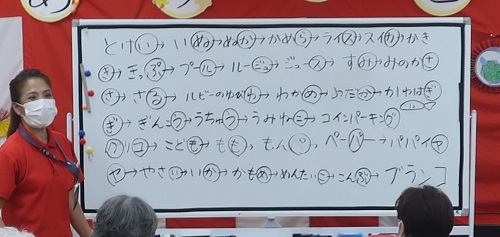 とけい→いぬ→ぬか→かめら→ライス→スイカ→かき
き→きっぷ→プール→ルージュ→ジュース→すみ→みのかさ
さ→さる→ルビーのゆびわ→わかめ→
ぎ→ぎんこう→うちゅう→うみねこ→コインパーキング
グリコ→こども→もも、もんぺ、ペーパー→パパイヤ
ヤ→やさい→いか→かもめ→めんたいこ→こんぶ→ブランコ